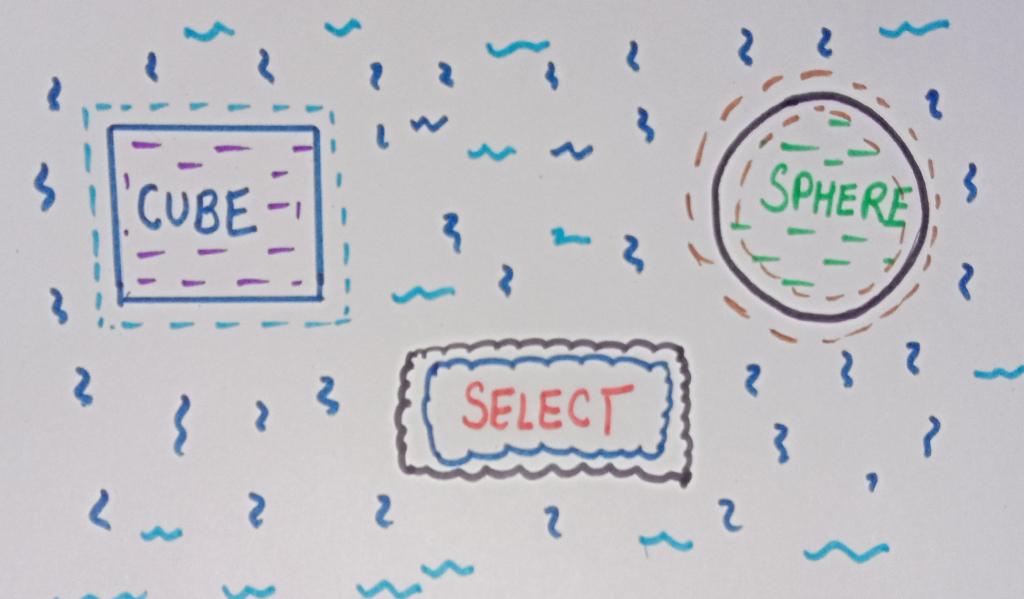 CUBE
SPHERE
SELECT